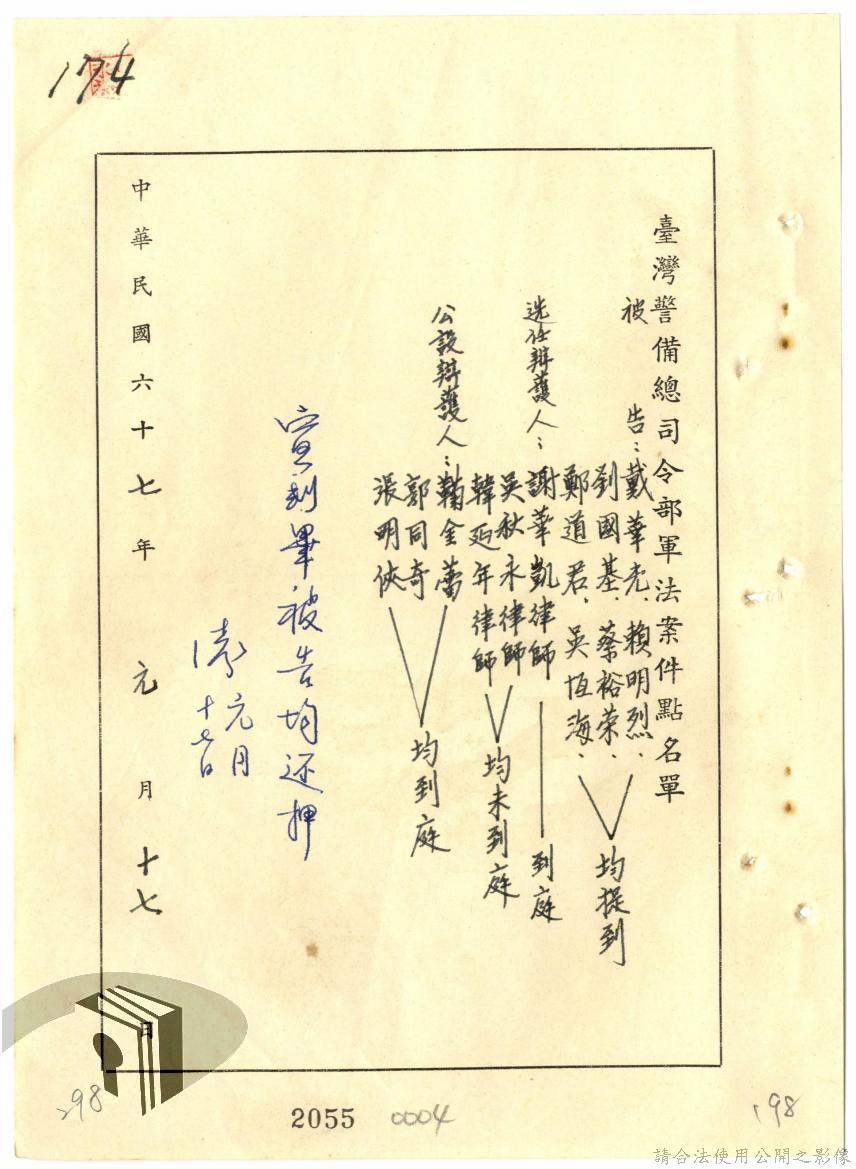 174
臺灣警備總司令部軍法案件點名單
被告：戴華光、賴明烈、
劉國基、蔡裕榮、
鄭道君、吳恆海、
均提到
選任辯護人：謝華凱律師
到庭
吳秋永律師
韓延年律師
均未到庭
公設辯護人：鞠金蕾
郭同奇
張明俠
均到庭
宣判畢被告均还押
元月
十七日
中華民國六十七年元月十七日
298
2055
0004
198
請合法使用公開之影像